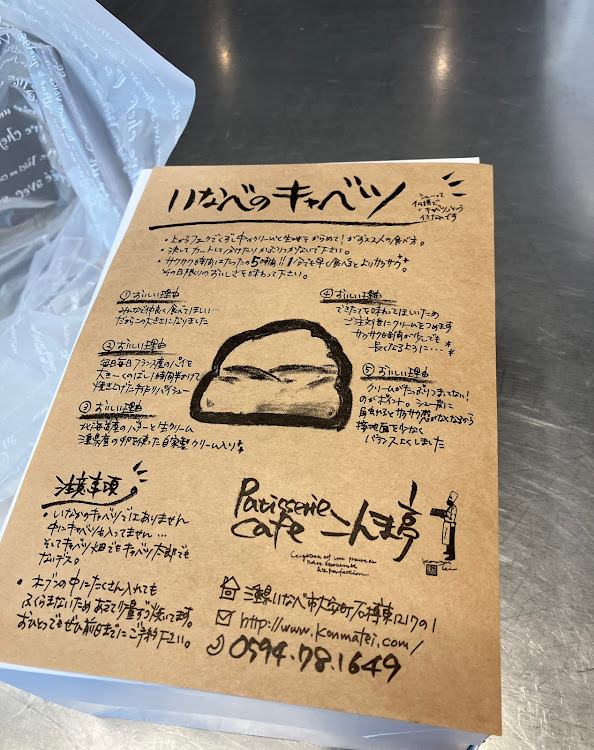 いなべのキャベツ
シューって
仏語で
"キャベツ"という
イミなんです
・上からフォークでくずし中のクリームと生地をからめて！がオススメの食べ方。
・決してカットして分けたりかぶりつかないで下さい。
・サクサク時間はたったの5時間!!1分でも早く食べるとよりサクサク
その日限りのおいしさを味わって下さい。
①おいしい理由
みんなで仲良く食べてほしい…
だからこの大きさになりました
②おいしい理由
毎日毎日フランス産のパイを
大きーくのばし1時間半かけて
焼き上げた手作りパイシュー
③おいしい理由
北海道産のバターと生クリーム
三重県産の卵を使った自家製クリーム入り
④おいしい理由
できたてを味わってほしいため
ご注文後にクリームをつめます
サクサク時間が少しでも
長くなるように・・・
⑤おいしい理由
クリームがたっぷりつまってない！
のがポイント。シュー皮に
触れるとサクサク感がなくなるから
接地面を少なく
バランスよくしました
注意事項
・いなかのキャベツではありません
中にキャベツも入ってません…
そしてキャベツ畑でもキャベツ太郎でも
ないデス。
・オーブンの中にたくさん入れても
ふくらまないため ある程度量ずつ焼いてます。
おひとつでもぜひ前日までにご予約下さい。
Patisserie
cafe こんま亭
三重県いなべ市大安町石榑東1217の1
http://www.konmatei.com/
0594.78.1649